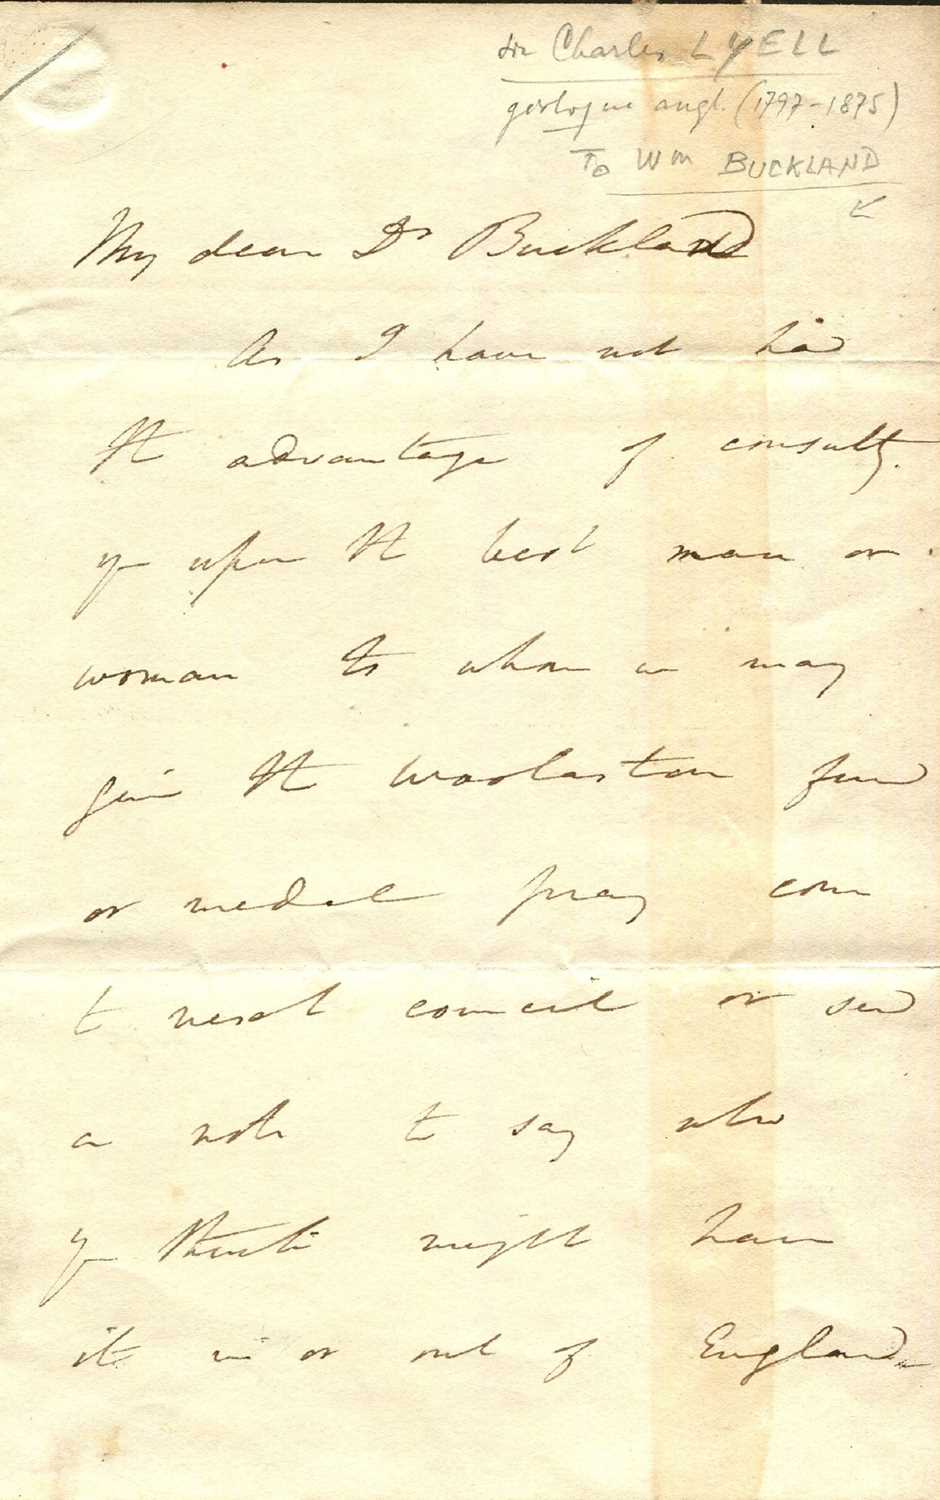 Sir Charles LYELL
geologue angl. (1797-1875)
To Wm BUCKLAND
My dear Dr Buckland
As I have not had
the advantage of consultg.
you upon the best man or
woman to whom we may
give the Woolaston fund
or medal pray come
to next council or send
a note to say who
you think might have
it in or out of England